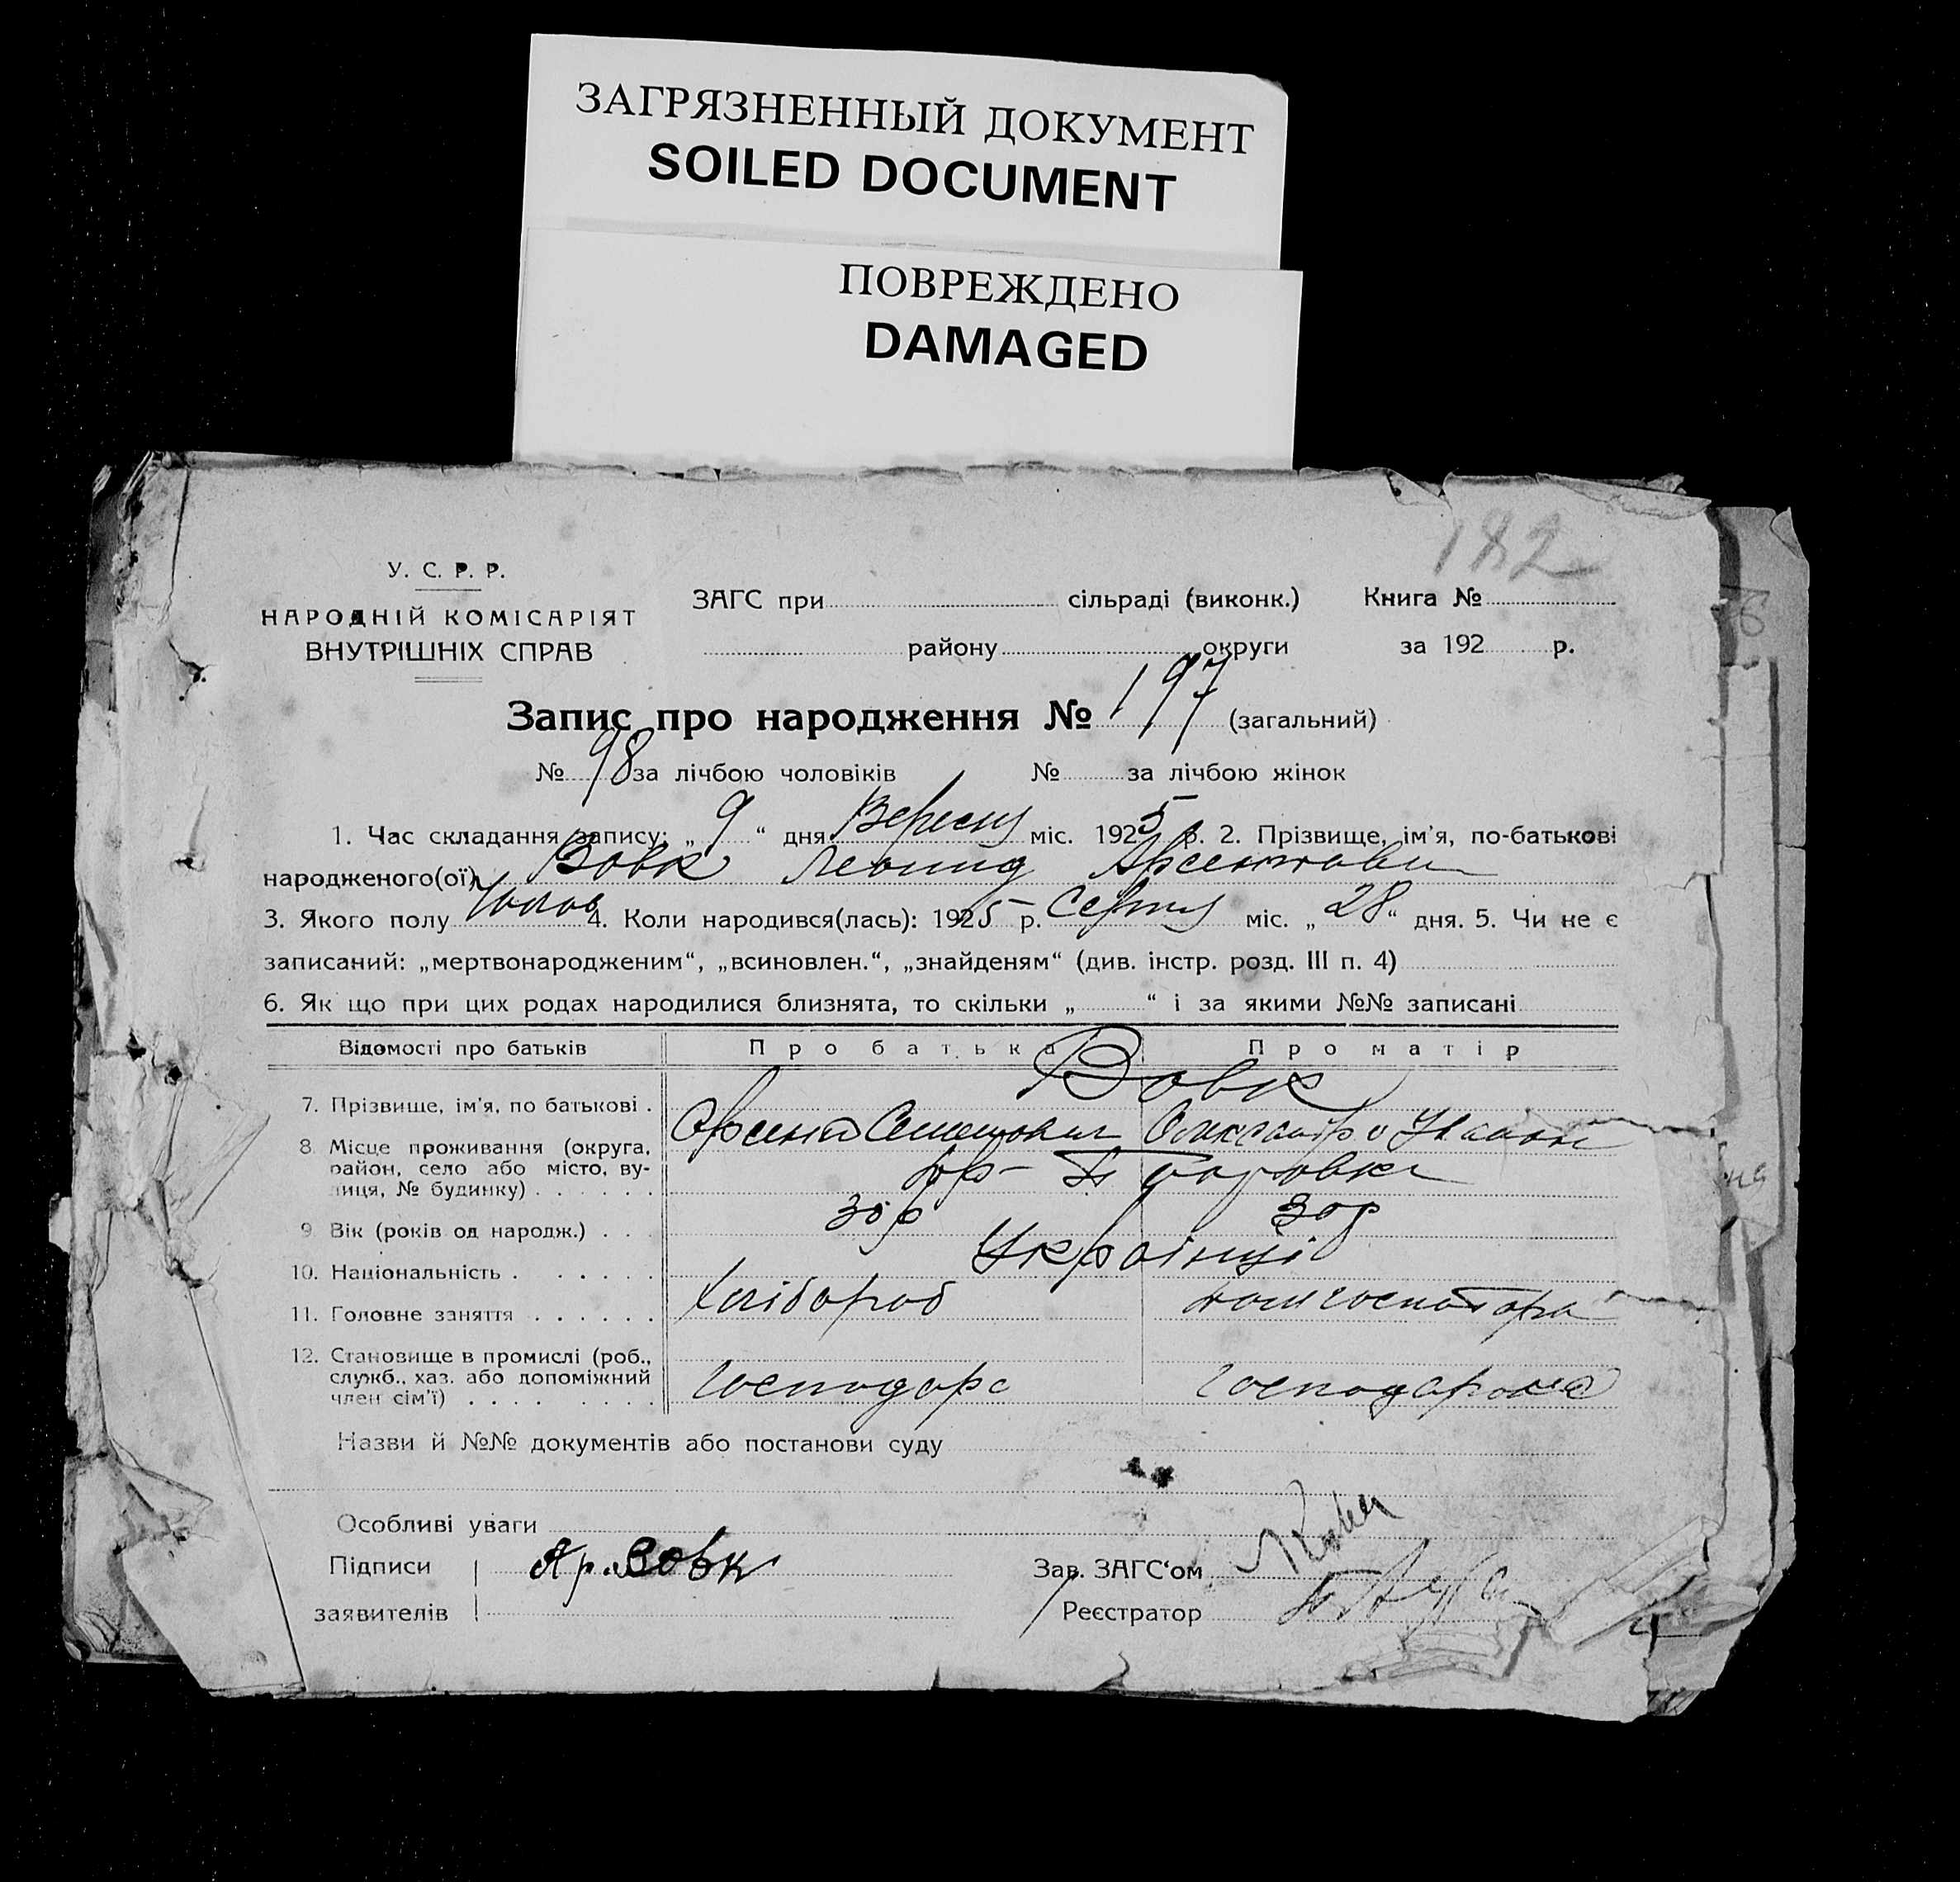 ЗАГРЯЗНЕННЫЙ ДОКУМЕНТ
SOILED DOCUMENT
ПОВРЕЖДЕНО
DAMAGED
182
У. С. Р. Р.
НАРОДНІЙ КОМІСАРІЯТ
ВНУТРІШНІХ СПРАВ
ЗАГС при сільраді (виконк.) Книга №
району округи за 192 р.
Запис про народження № 197 (загальний)
№ 98 за лічбою чоловіків № за лічбою жінок
1. Час складання запису: „ 9 “ дня Вересня міс. 1925 р. 2. Прізвище, ім'я, по-батькові
народженого(ої) Вовк Леонид
3. Якого полу Чолов 4. Коли народився(лась): 1925 р. Серпня міс. „ 28 “ дня. 5. Чи не є
записаний: „мертвонародженим“, „всиновлен.“, „знайденям“ (див. інстр. розд. III п. 4)
6. Як що при цих родах народилися близнята, то скільки „ “ і за якими №№ записані
Відомості про батьків Про батька Про матір
Вовк
7. Прізвище, ім'я, по батькові .
8 Місце проживання (округа,
район, село або місто, ву-
лиця, № будинку) . . . . . .
9 Вік (років од народж.) . . . 30 р 30 р
10. Національність . . . . . . Українці
11. Головне заняття . . . . . . Хлібороб
12. Становище в промислі (роб.,
служб., хаз. або допоміжний
член сім'ї) . . . . . . . . Господарь
Назви й №№ документів або постанови суду
Особливі уваги
Підписи Ар. Вовк Зав. ЗАГС'ом
заявителів Реєстратор